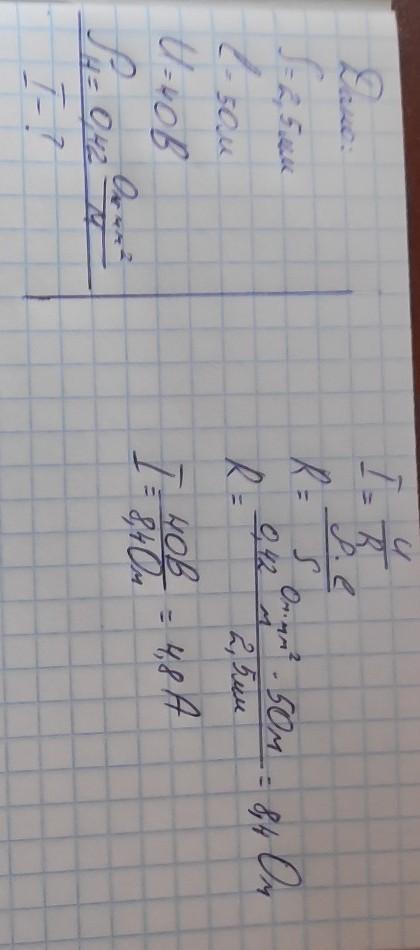 Дано:
S = 2,5 мм
l = 50 м
U = 40 В
ρн = 0,42 Ом·мм²/м
I - ?
I = U/R
R = ρ·l/S
R = 0,42 Ом·мм²/м · 50 м / 2,5 мм = 8,4 Ом
I = 40 В / 8,4 Ом = 4,8 А